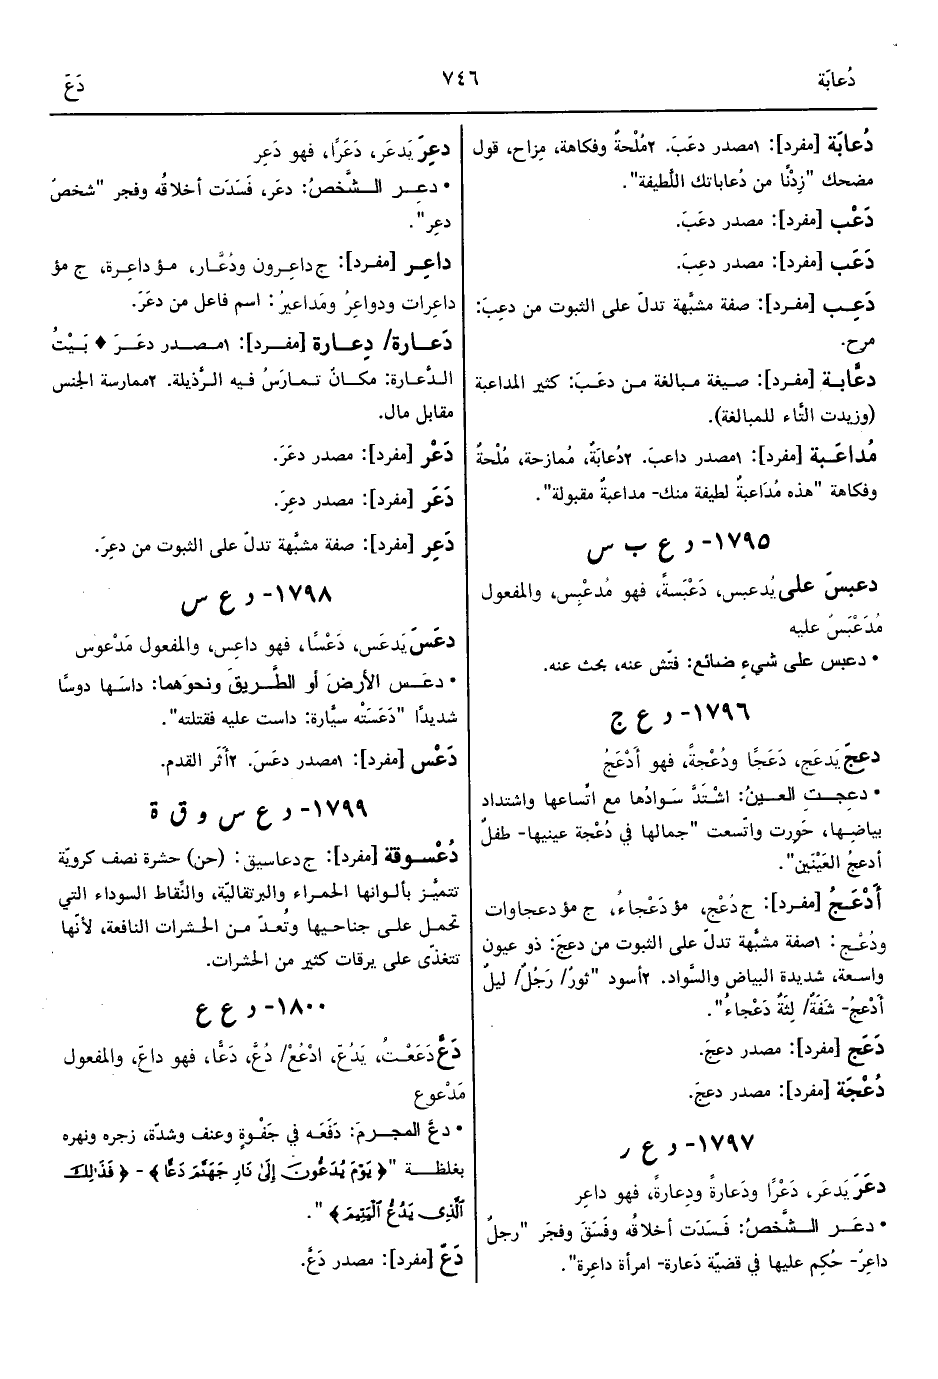 دُعابَة
٧٤٦
دَعّ
دُعابَة [مفرد]: ١مصدر دعَبَ. ٢مُلْحةٌ وفكاهة، مِزاح، قول
مضحك "زِدْنَا من دُعاباتك اللَّطيفة".
دَعْب [مفرد]: مصدر دعَبَ.
دَعَب [مفرد]: مصدر دعِبَ.
دَعِب [مفرد]: صفة مشبَّهة تدلّ على الثبوت من دعِبَ:
مرح.
دعَّابة [مفرد]: صيغة مبالغة من دعَبَ: كثير المداعبة
(وزيدت التَّاء للمبالغة).
مُداعَبة [مفرد]: ١مصدر داعبَ. ٢دُعابَةٌ، مُمازحة، مُلْحةٌ
وفكاهة "هذه مُدَاعبةٌ لطيفة منك- مداعبةٌ مقبولة".
١٧٩٥- د ع ب س
دعبسَ على يُدعبس، دَعْبَسةً، فهو مُدعْبِس، والمفعول
مُدَعْبَسَ عليه
• دعبس على شيءٍ ضائع: فتّش عنه، بحث عنه.
١٧٩٦- د ع ج
دعِجَ يَدعَج، دَعَجًا ودُعْجةً، فهو أدْعَجُ
• دعِجت العينُ: اشْتَدَّ سَوادُها مع اتِّساعها واشتداد
بياضِها، حَوِرت واتّسعت "جمالها في دُعْجة عينيها- طفلٌ
أدعجُ العَيْنَين".
أدْعَجُ [مفرد]: ج دُعْج، مؤ دَعْجاءُ، ج مؤ دعجاوات
ودُعْج: ١صفة مشبَّهة تدلّ على الثبوت من دعِجَ: ذو عيون
واسعة، شديدة البياض والسَّواد. ٢أسود "ثورٌ/ رَجُلٌ/ ليلٌ
أدْعجُ- شَفَةٌ/ لِثَةٌ دَعْجاءُ".
دَعَج [مفرد]: مصدر دعِجَ.
دُعْجَة [مفرد]: مصدر دعِجَ.
١٧٩٧- د ع ر
دعَرَ يَدعَر، دَعْرًا ودَعارةً ودِعارةً، فهو داعِر
• دعَر الشَّخصُ: فَسَدَت أخلاقُه وفَسَقَ وفجَر "رجلٌ
داعِرٌ- حُكِم عليها في قضيّة دَعارة- امرأة داعِرة".
دعِرَ يَدعَر، دَعَرًا، فهو دَعِر
• دعِر الشَّخصُ: دعَر، فَسَدَت أخلاقُه وفجر "شخصٌ
دعِر".
داعِر [مفرد]: ج داعِرون ودُعَّار، مؤ داعِرة، ج مؤ
داعِرات ودواعِرُ ومَداعيرُ: اسم فاعل من دعَرَ.
دَعارة/ دِعارة [مفرد]: ١مصدر دعَرَ ♦ بَيْتُ
الدَّعارة: مكانٌ تمارَسُ فيه الرَّذيلة. ٢ممارسة الجنس
مقابل مال.
دَعْر [مفرد]: مصدر دعَرَ.
دَعَر [مفرد]: مصدر دعِرَ.
دَعِر [مفرد]: صفة مشبَّهة تدلّ على الثبوت من دعِرَ.
١٧٩٨- د ع س
دعَسَ يَدعَس، دَعْسًا، فهو داعِس، والمفعول مَدْعوس
• دعَس الأرضَ أو الطَّريقَ ونحوَهما: داسَها دوسًا
شديدًا "دَعَسَتْه سيَّارة: داست عليه فقتلته".
دَعْس [مفرد]: ١مصدر دعَسَ. ٢أثَر القدم.
١٧٩٩- د ع س و ق ة
دُعْسوقة [مفرد]: ج دعاسيق: (حن) حشرة نصف كرويّة
تتميَّز بألوانها الحمراء والبرتقاليّة، والنِّقاط السوداء التي
تحمل على جناحيها وتُعدّ من الحشرات النافعة، لأنّها
تتغذّى على يرقات كثير من الحشرات.
١٨٠٠- د ع ع
دَعَّ دَعَعْتُ، يَدُعّ، ادْعُعْ/ دُعَّ، دَعًّا، فهو داعّ، والمفعول
مَدْعوع
• دعَّ المجرمَ: دَفَعَه في جَفْوةٍ وعنف وشدّة، زجره ونهره
بغلظة "﴿يَوْمَ يُدَعُّونَ إِلَىٰ نَارِ جَهَنَّمَ دَعًّا﴾- ﴿فَذَٰلِكَ
ٱلَّذِى يَدُعُّ ٱلْيَتِيمَ﴾".
دَعّ [مفرد]: مصدر دَعَّ.